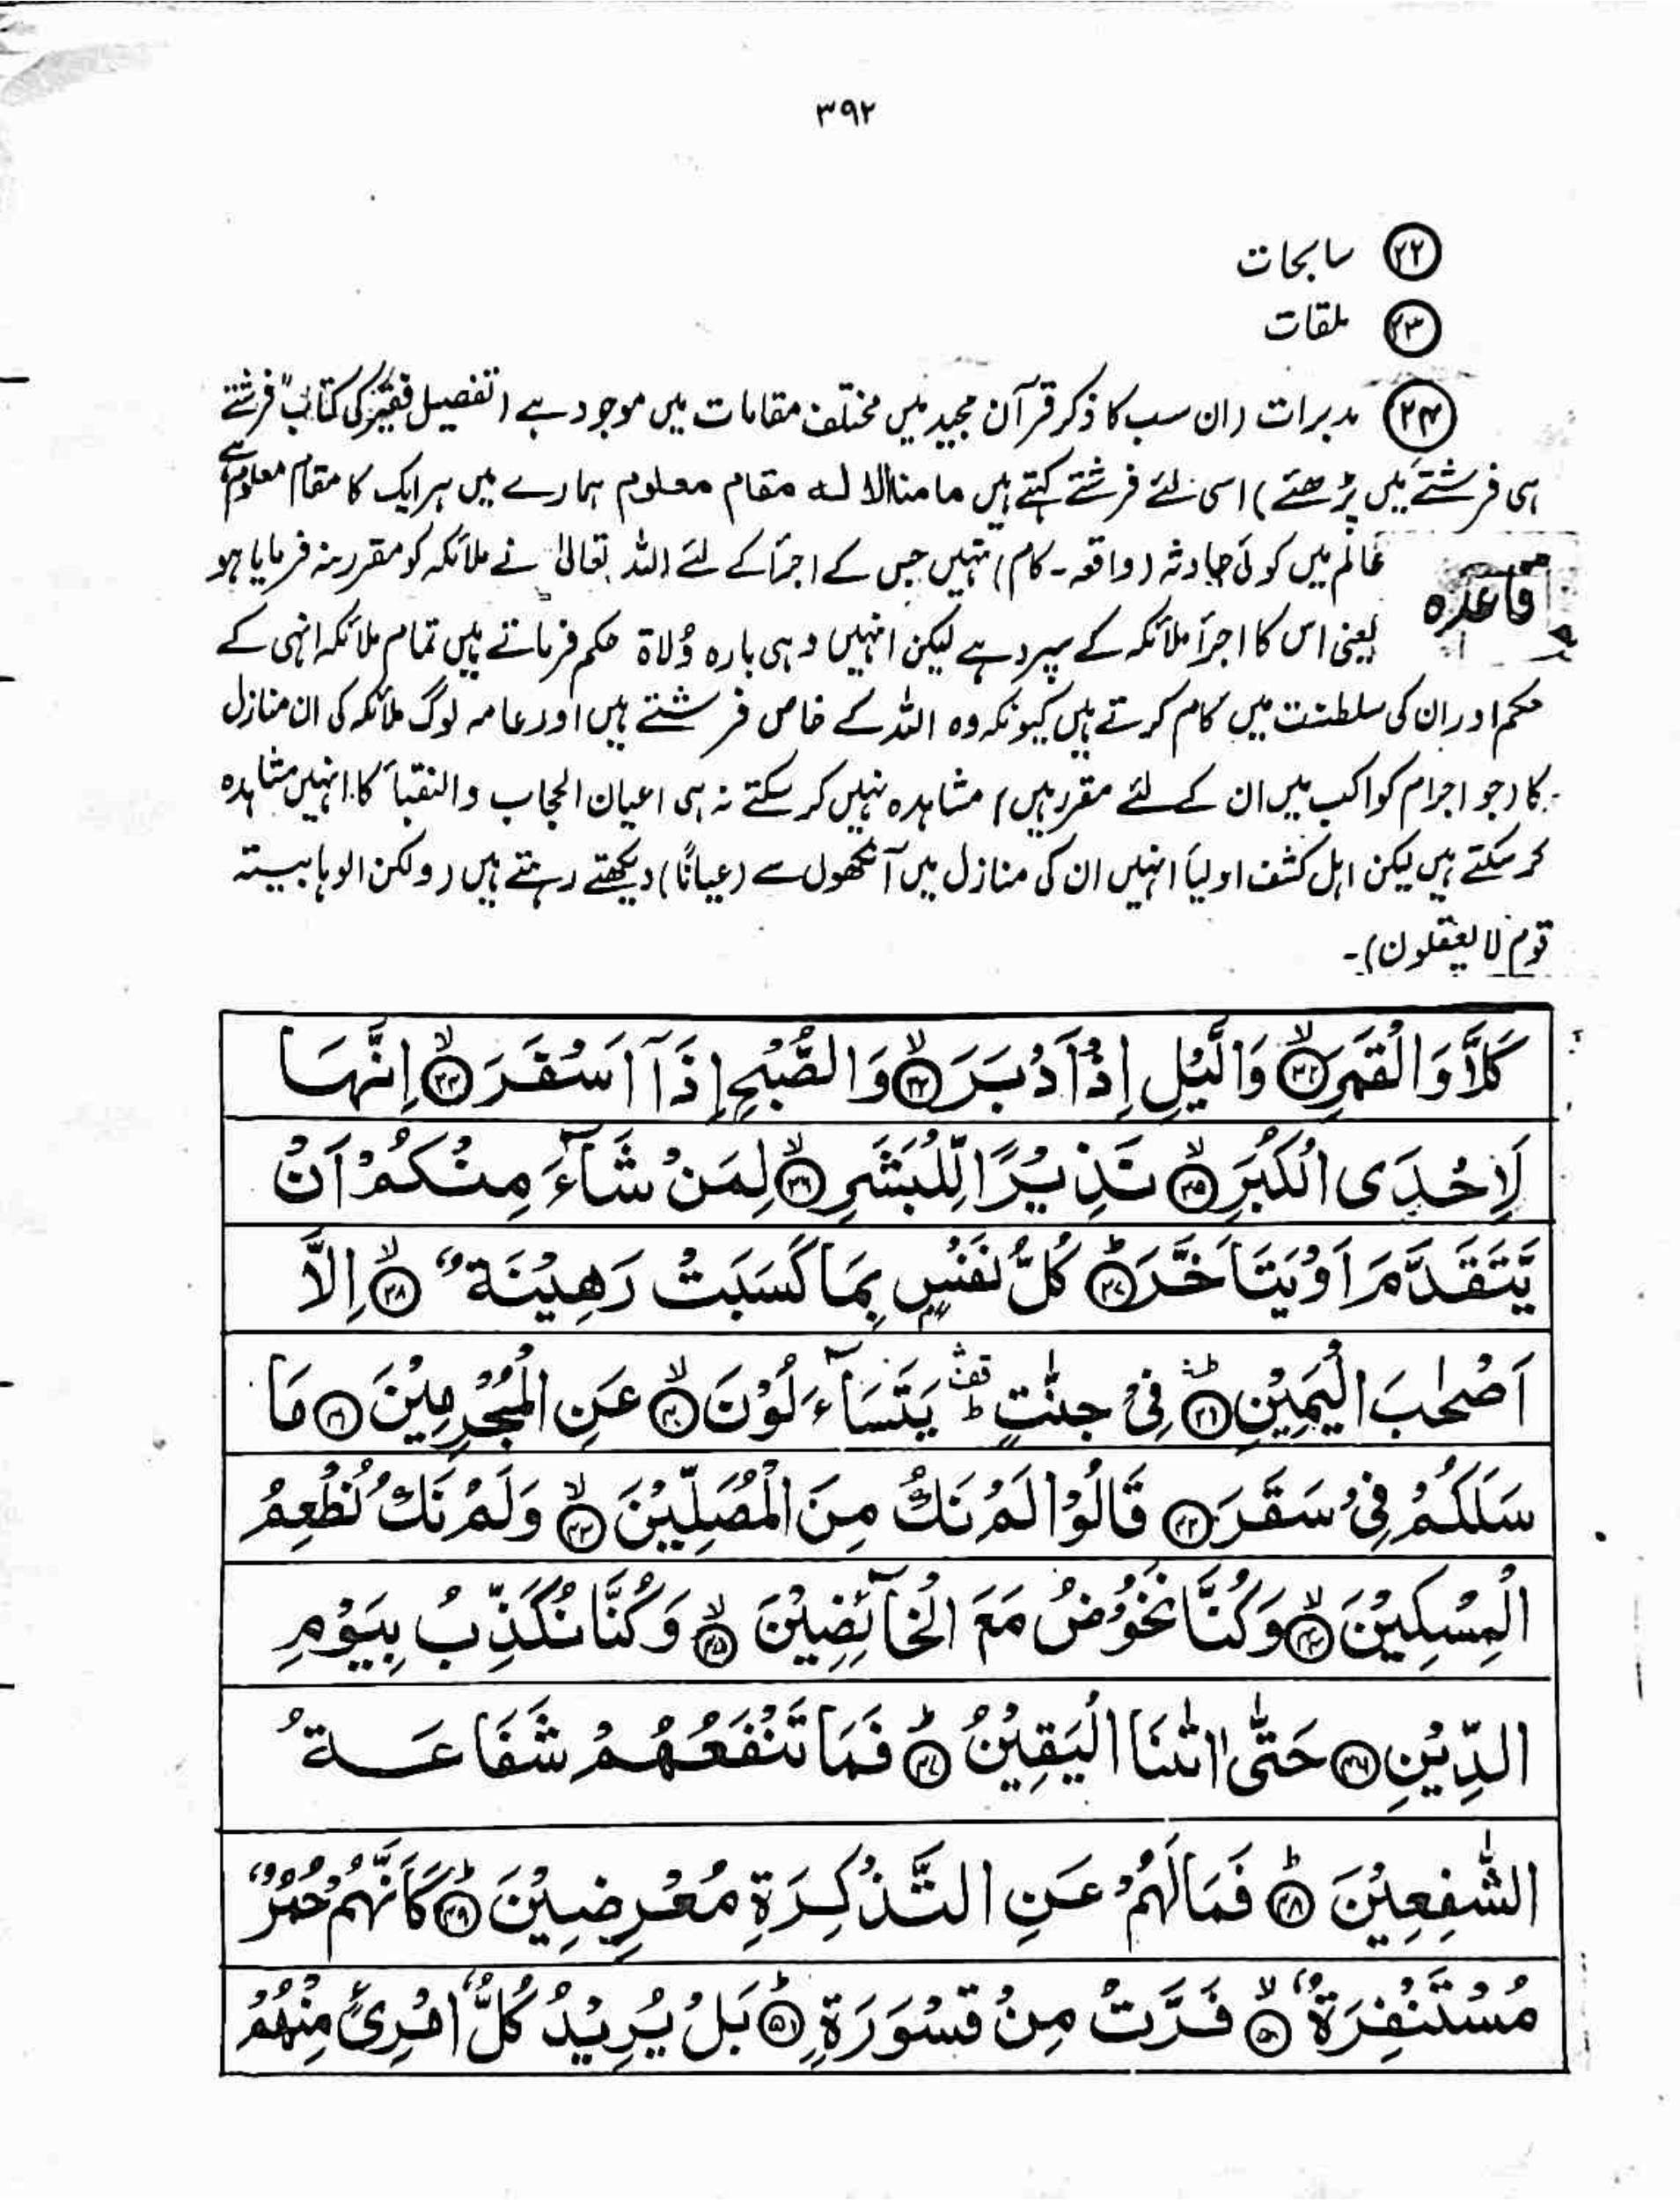 ۳۹۲
۲۲ سابحات
۲۳ ملقات
۲۴ مدبرات (ان سب کا ذکر قرآن مجید میں مختلف مقامات میں موجود ہے (تفصیل فقیر کی کتاب "فرشتے
ہی فرشتے میں پڑھئے) اسی لئے فرشتے کہتے ہیں ما منا الا له مقام معلوم ہمارے میں ہر ایک کا مقام معلوم ہے
قاعدہ عالم میں کوئی حادثہ (واقعہ۔کام) نہیں جس کے اجرأ کے لئے اللہ تعالیٰ نے ملائکہ کو مقرر نہ فرمایا ہو
یعنی اس کا اجرأ ملائکہ کے سپرد ہے لیکن انہیں وہی بارہ وُلاة حکم فرماتے ہیں تمام ملائکہ انہی کے
حکم اور ان کی سلطنت میں کام کرتے ہیں کیونکہ وہ اللہ کے خاص فرشتے ہیں اور عامہ لوگ ملائکہ کی ان منازل
کا (جو اجرام کواکب میں ان کے لئے مقرر ہیں) مشاہدہ نہیں کر سکتے نہ ہی اعیان الحجاب والنقبأ کا انہیں مشاہدہ
کر سکتے ہیں لیکن اہل کشف اولیأ انہیں ان کی منازل میں آنکھوں سے (عیانًا) دیکھتے رہتے ہیں (ولکن الوہابیتہ
قوم لا یعقلون)۔
كَلَّا وَالْقَمَرِ ۝۳۲ وَالَّیْلِ اِذْ اَدْبَرَ ۝۳۳ وَالصُّبْحِ اِذَآ اَسْفَرَ ۝۳۴ اِنَّهَا
لَاِحْدَی الْكُبَرِ ۝۳۵ نَذِیْرًا لِّلْبَشَرِ ۝۳۶ لِمَنْ شَآءَ مِنْكُمْ اَنْ
یَّتَقَدَّمَ اَوْ یَتَاَخَّرَ ۝۳۷ كُلُّ نَفْسٍۭ بِمَا كَسَبَتْ رَهِیْنَةٌ ۝۳۸ اِلَّاۤ
اَصْحٰبَ الْیَمِیْنِ ۝۳۹ فِیْ جَنّٰتٍ یَتَسَآءَلُوْنَ ۝۴۰ عَنِ الْمُجْرِمِیْنَ ۝۴۱ مَا
سَلَكَكُمْ فِیْ سَقَرَ ۝۴۲ قَالُوْا لَمْ نَكُ مِنَ الْمُصَلِّیْنَ ۝۴۳ وَلَمْ نَكُ نُطْعِمُ
الْمِسْكِیْنَ ۝۴۴ وَكُنَّا نَخُوْضُ مَعَ الْخَآئِضِیْنَ ۝۴۵ وَكُنَّا نُكَذِّبُ بِیَوْمِ
الدِّیْنِ ۝۴۶ حَتّٰۤی اَتٰىنَا الْیَقِیْنُ ۝۴۷ فَمَا تَنْفَعُهُمْ شَفَاعَةُ
الشّٰفِعِیْنَ ۝۴۸ فَمَا لَهُمْ عَنِ التَّذْكِرَةِ مُعْرِضِیْنَ ۝۴۹ كَاَنَّهُمْ حُمُرٌ
مُّسْتَنْفِرَةٌ ۝۵۰ فَرَّتْ مِنْ قَسْوَرَةٍ ۝۵۱ بَلْ یُرِیْدُ كُلُّ امْرِئٍ مِّنْهُمْ